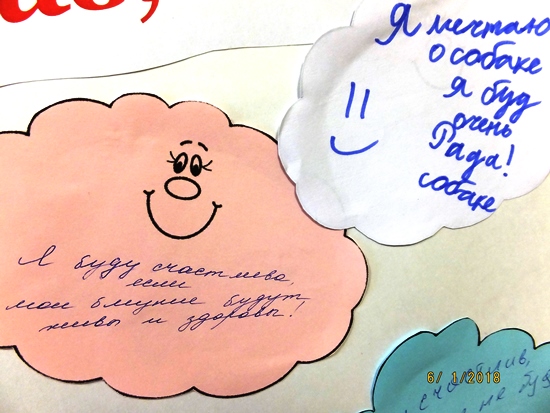 Я мечтаю
о собаке
я буд
очень
Рада!
собаке
Я буду счастлива,
если
мои близкие будут
живы и здоровы!
не буд
6/ 1/2018